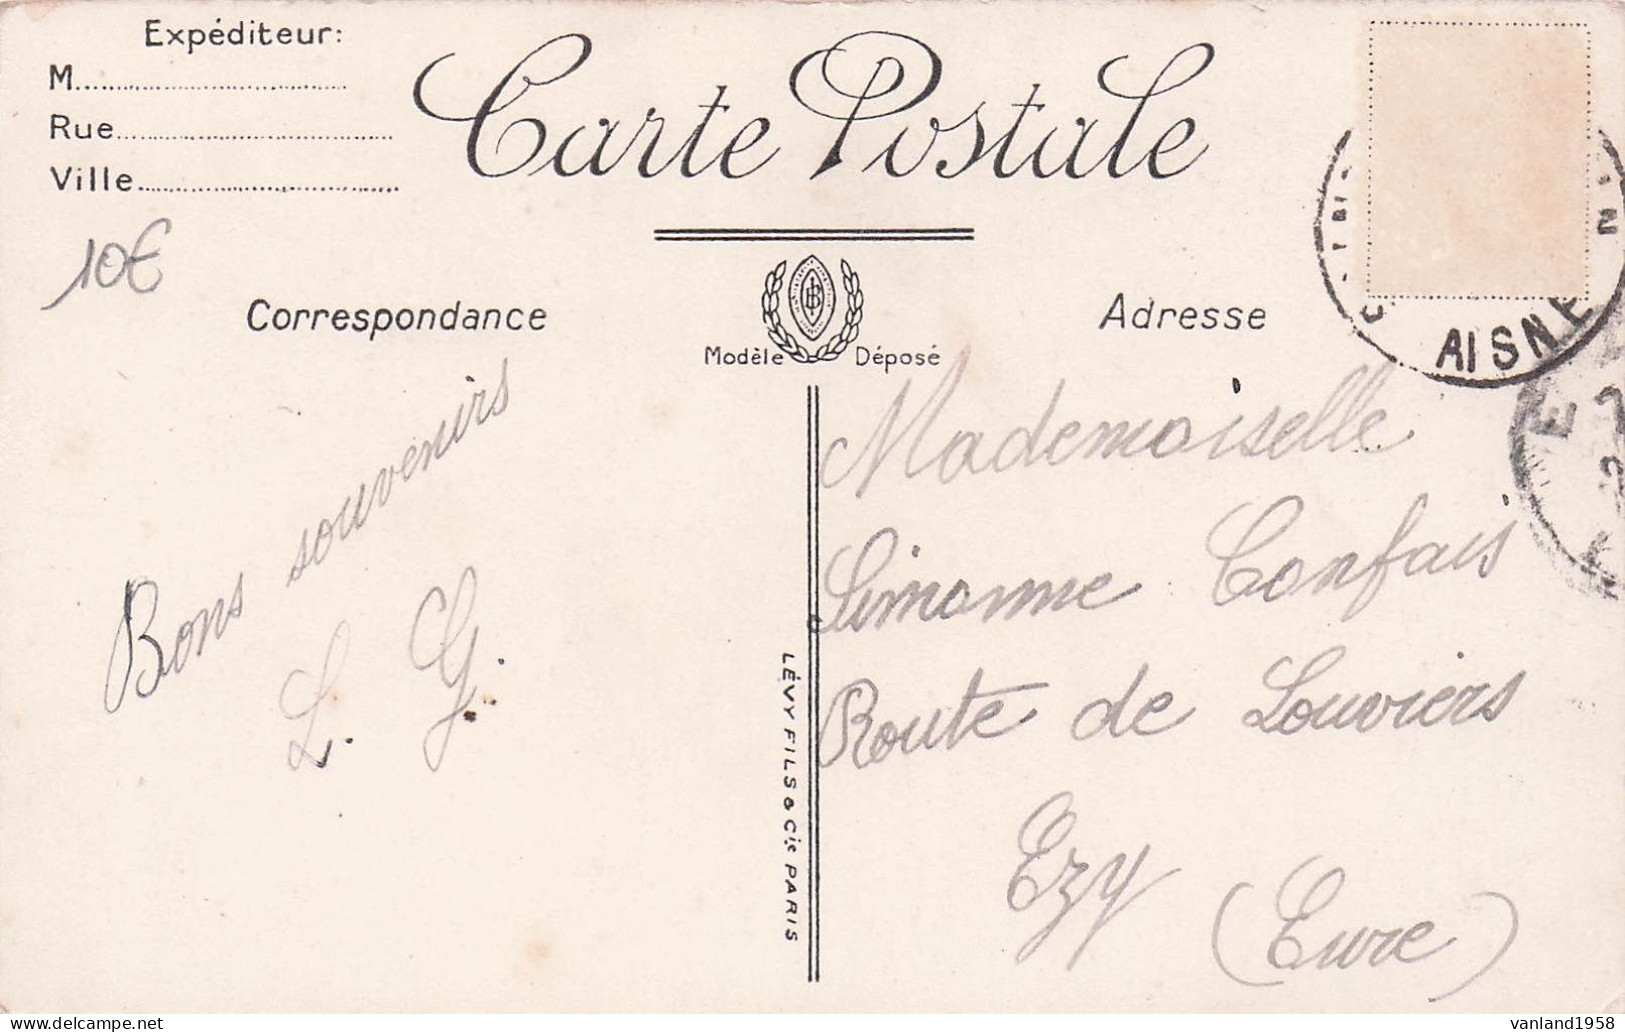 Expéditeur:
M
Rue
Ville
Carte Postale
10€
Correspondance
Modèle Déposé
Adresse
AISNE
Bons souvenirs
L. G.
LÉVY FILS & Cie PARIS
Mademoiselle
Simonne Confais
Route de Louviers
Ezy (Eure)
vanland1958